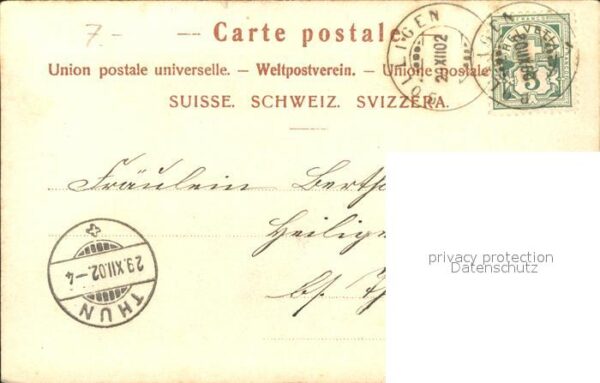 7.-
Carte postale
Union postale universelle. — Weltpostverein. — Unione postale
SUISSE. SCHWEIZ. SVIZZERA.
29 XII 02
5
Fräulein Berth
Heilige
bs. Th
29.XII.02.-4
THUN
privacy protection
Datenschutz